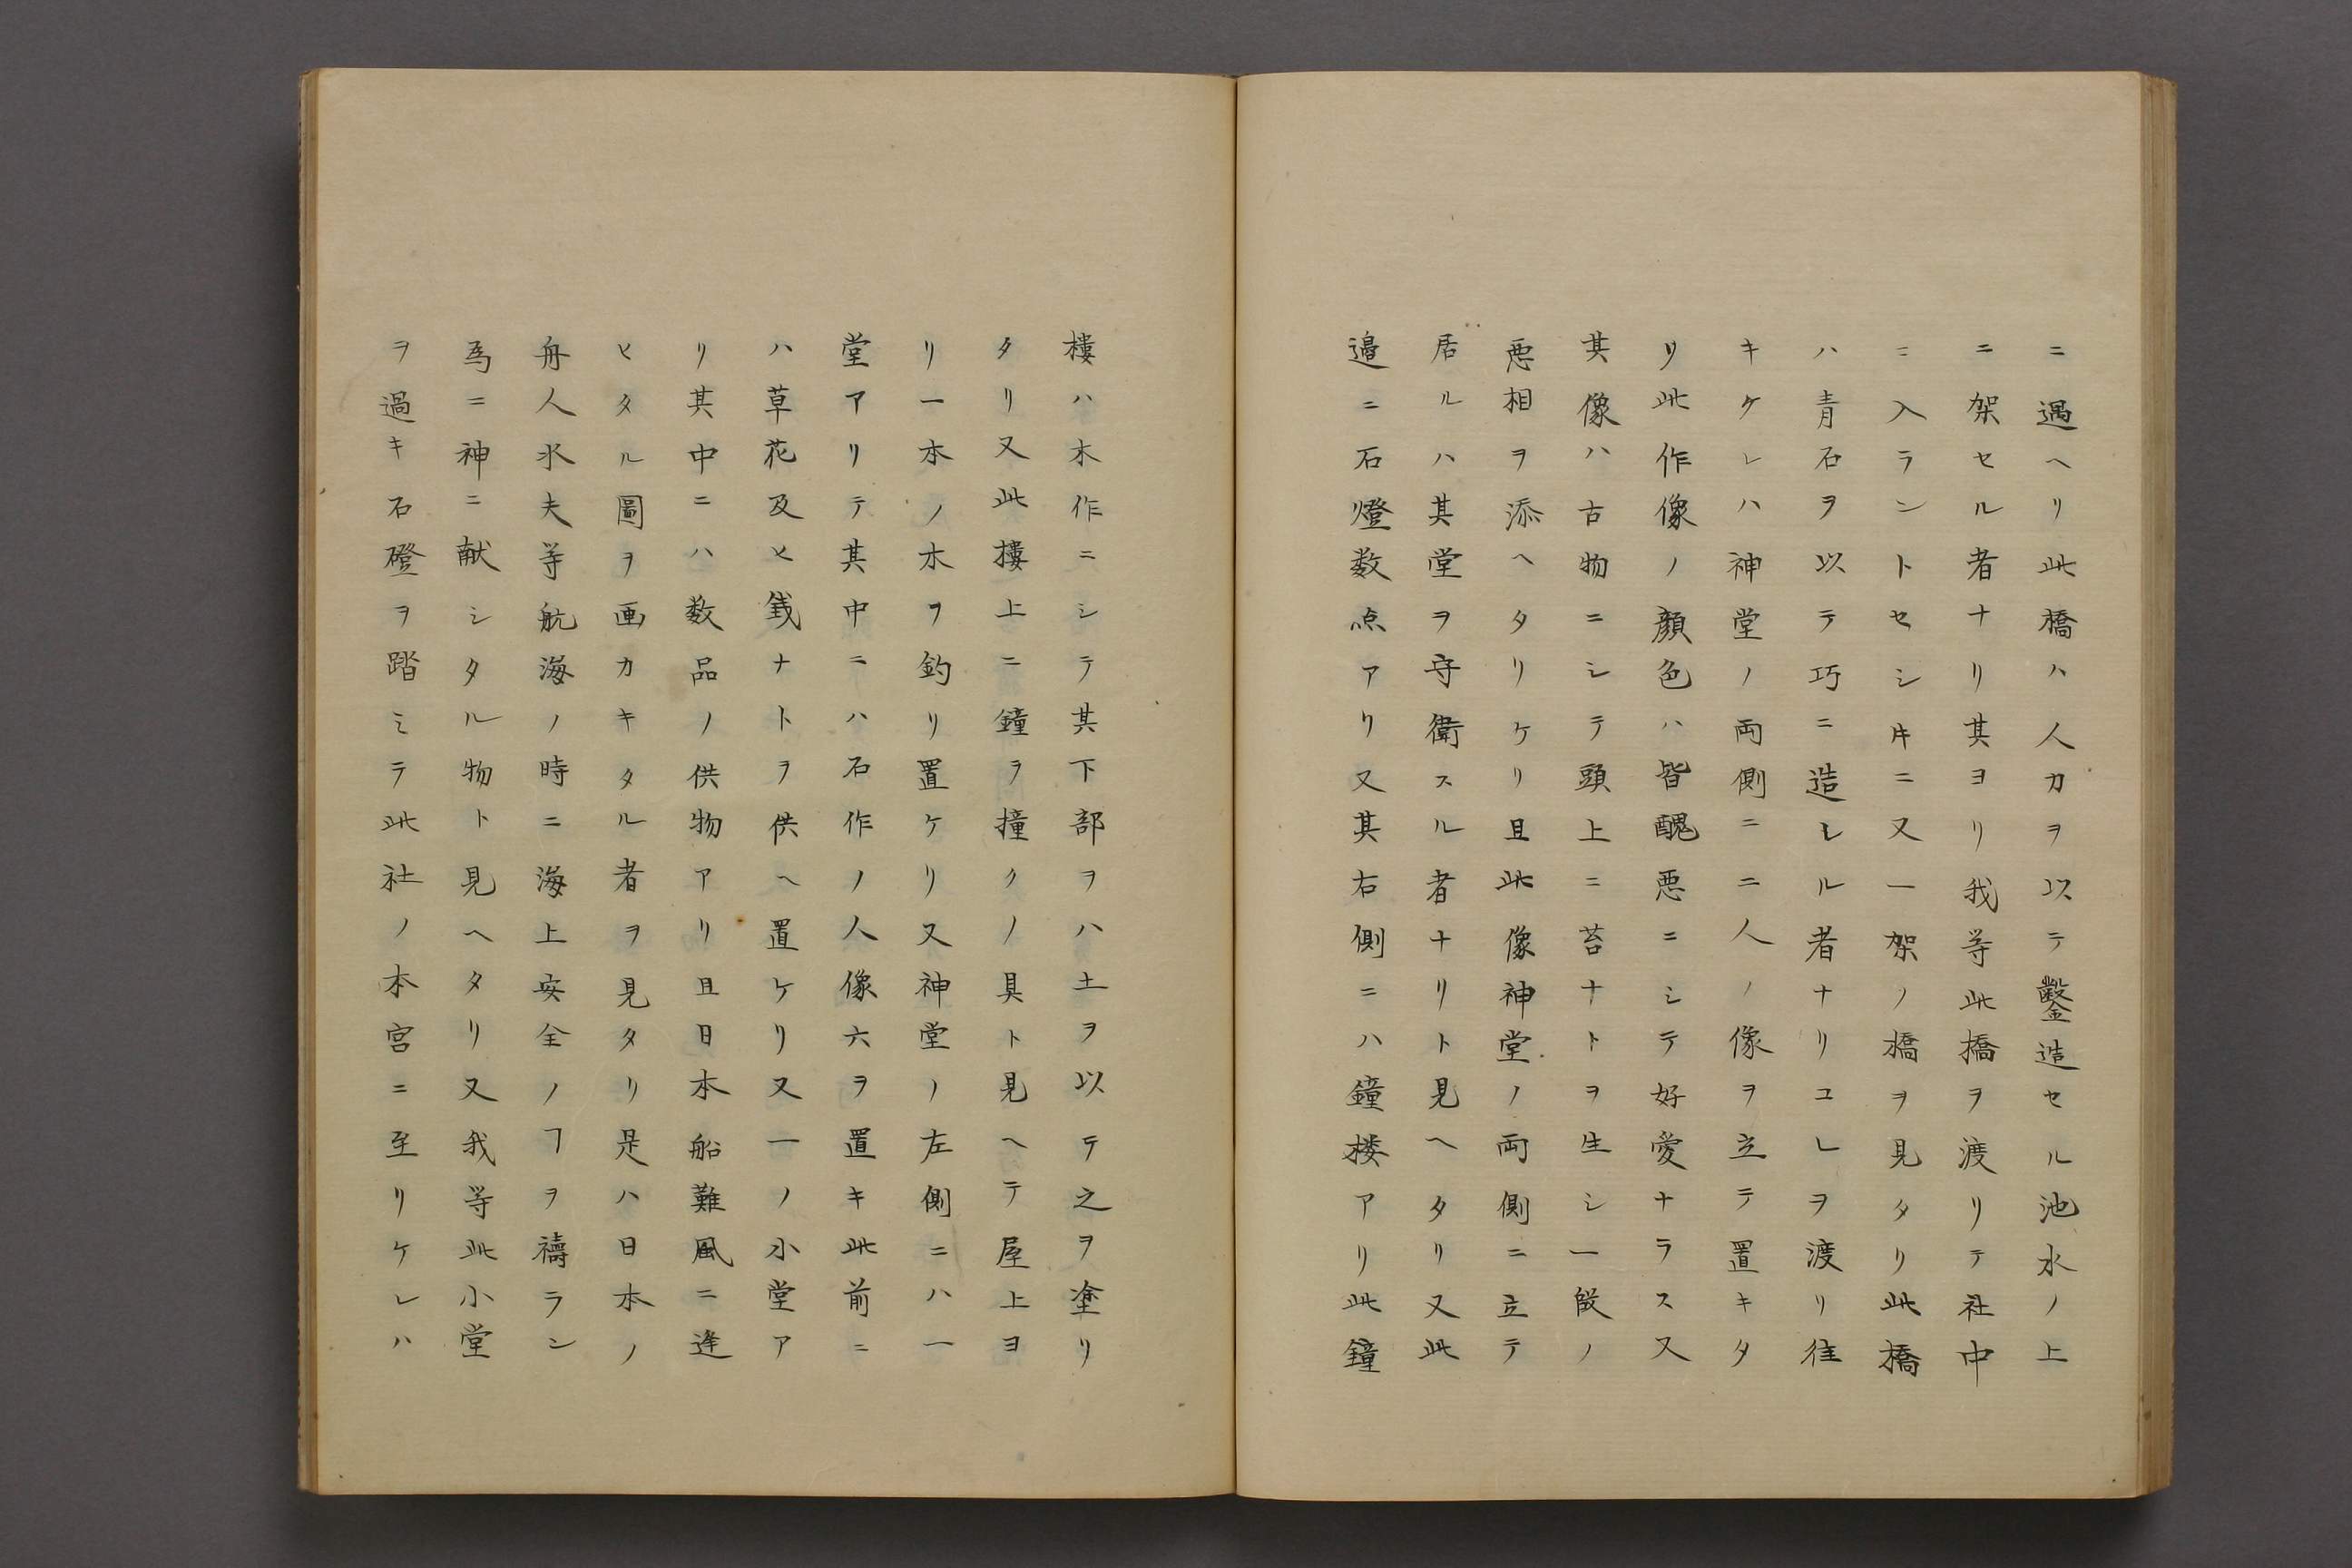 ニ遇ヘリ此橋ハ人力ヲ以テ鑿造セル池水ノ上
ニ架セル者ナリ其ヨリ我等此橋ヲ渡リテ社中
ニ入ラントセシキニ又一架ノ橋ヲ見タリ此橋
ハ青石ヲ以テ巧ニ造レル者ナリコレヲ渡リ往
キケレハ神堂ノ両側ニ二人ノ像ヲ立テ置キタ
リ此作像ノ顔色ハ皆醜悪ニシテ好愛ナラス又
其像ハ古物ニシテ頭上ニ苔ナトヲ生シ一段ノ
悪相ヲ添ヘタリケリ且此像神堂ノ両側ニ立テ
居ルハ其堂ヲ守衛スル者ナリト見ヘタリ又此
邉ニ石燈数点アリ又其右側ニハ鐘楼アリ此鐘
樓ハ木作ニシテ其下部ヲハ土ヲ以テ之ヲ塗リ
タリ又此樓上ニ鐘ヲ撞クノ具ト見ヘテ屋上ヨ
リ一本ノ木ヲ釣リ置ケリ又神堂ノ左側ニハ一
堂アリテ其中ニハ石作ノ人像六ヲ置キ此前ニ
ハ草花及ヒ銭ナトヲ供ヘ置ケリ又一ノ小堂ア
リ其中ニハ数品ノ供物アリ且日本船難風ニ逢
ヒタル圖ヲ画カキタル者ヲ見タリ是ハ日本ノ
舟人水夫等航海ノ時ニ海上安全ノヿヲ禱ラン
為ニ神ニ献シタル物ト見ヘタリ又我等此小堂
ヲ過キ石磴ヲ踏ミテ此社ノ本宮ニ至リケレハ